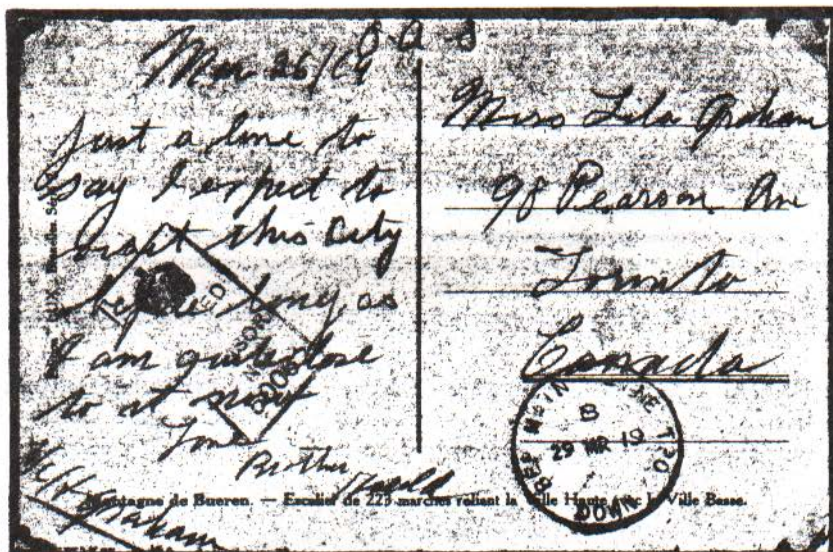 O A S
Mar 26/19
Just a line to
say I expect to
visit this City
before long as
I am quite close
to it now
Love
Brother
Harold
Graham
Miss Lila Graham
98 Pearson Ave
Toronto
Canada
PASSED
CENSOR
BEF MAIN LINE TPO
B
29 MR 19
DOWN
Montagne de Bueren. — Escalier de 223 marches reliant la Ville Haute avec la Ville Basse.